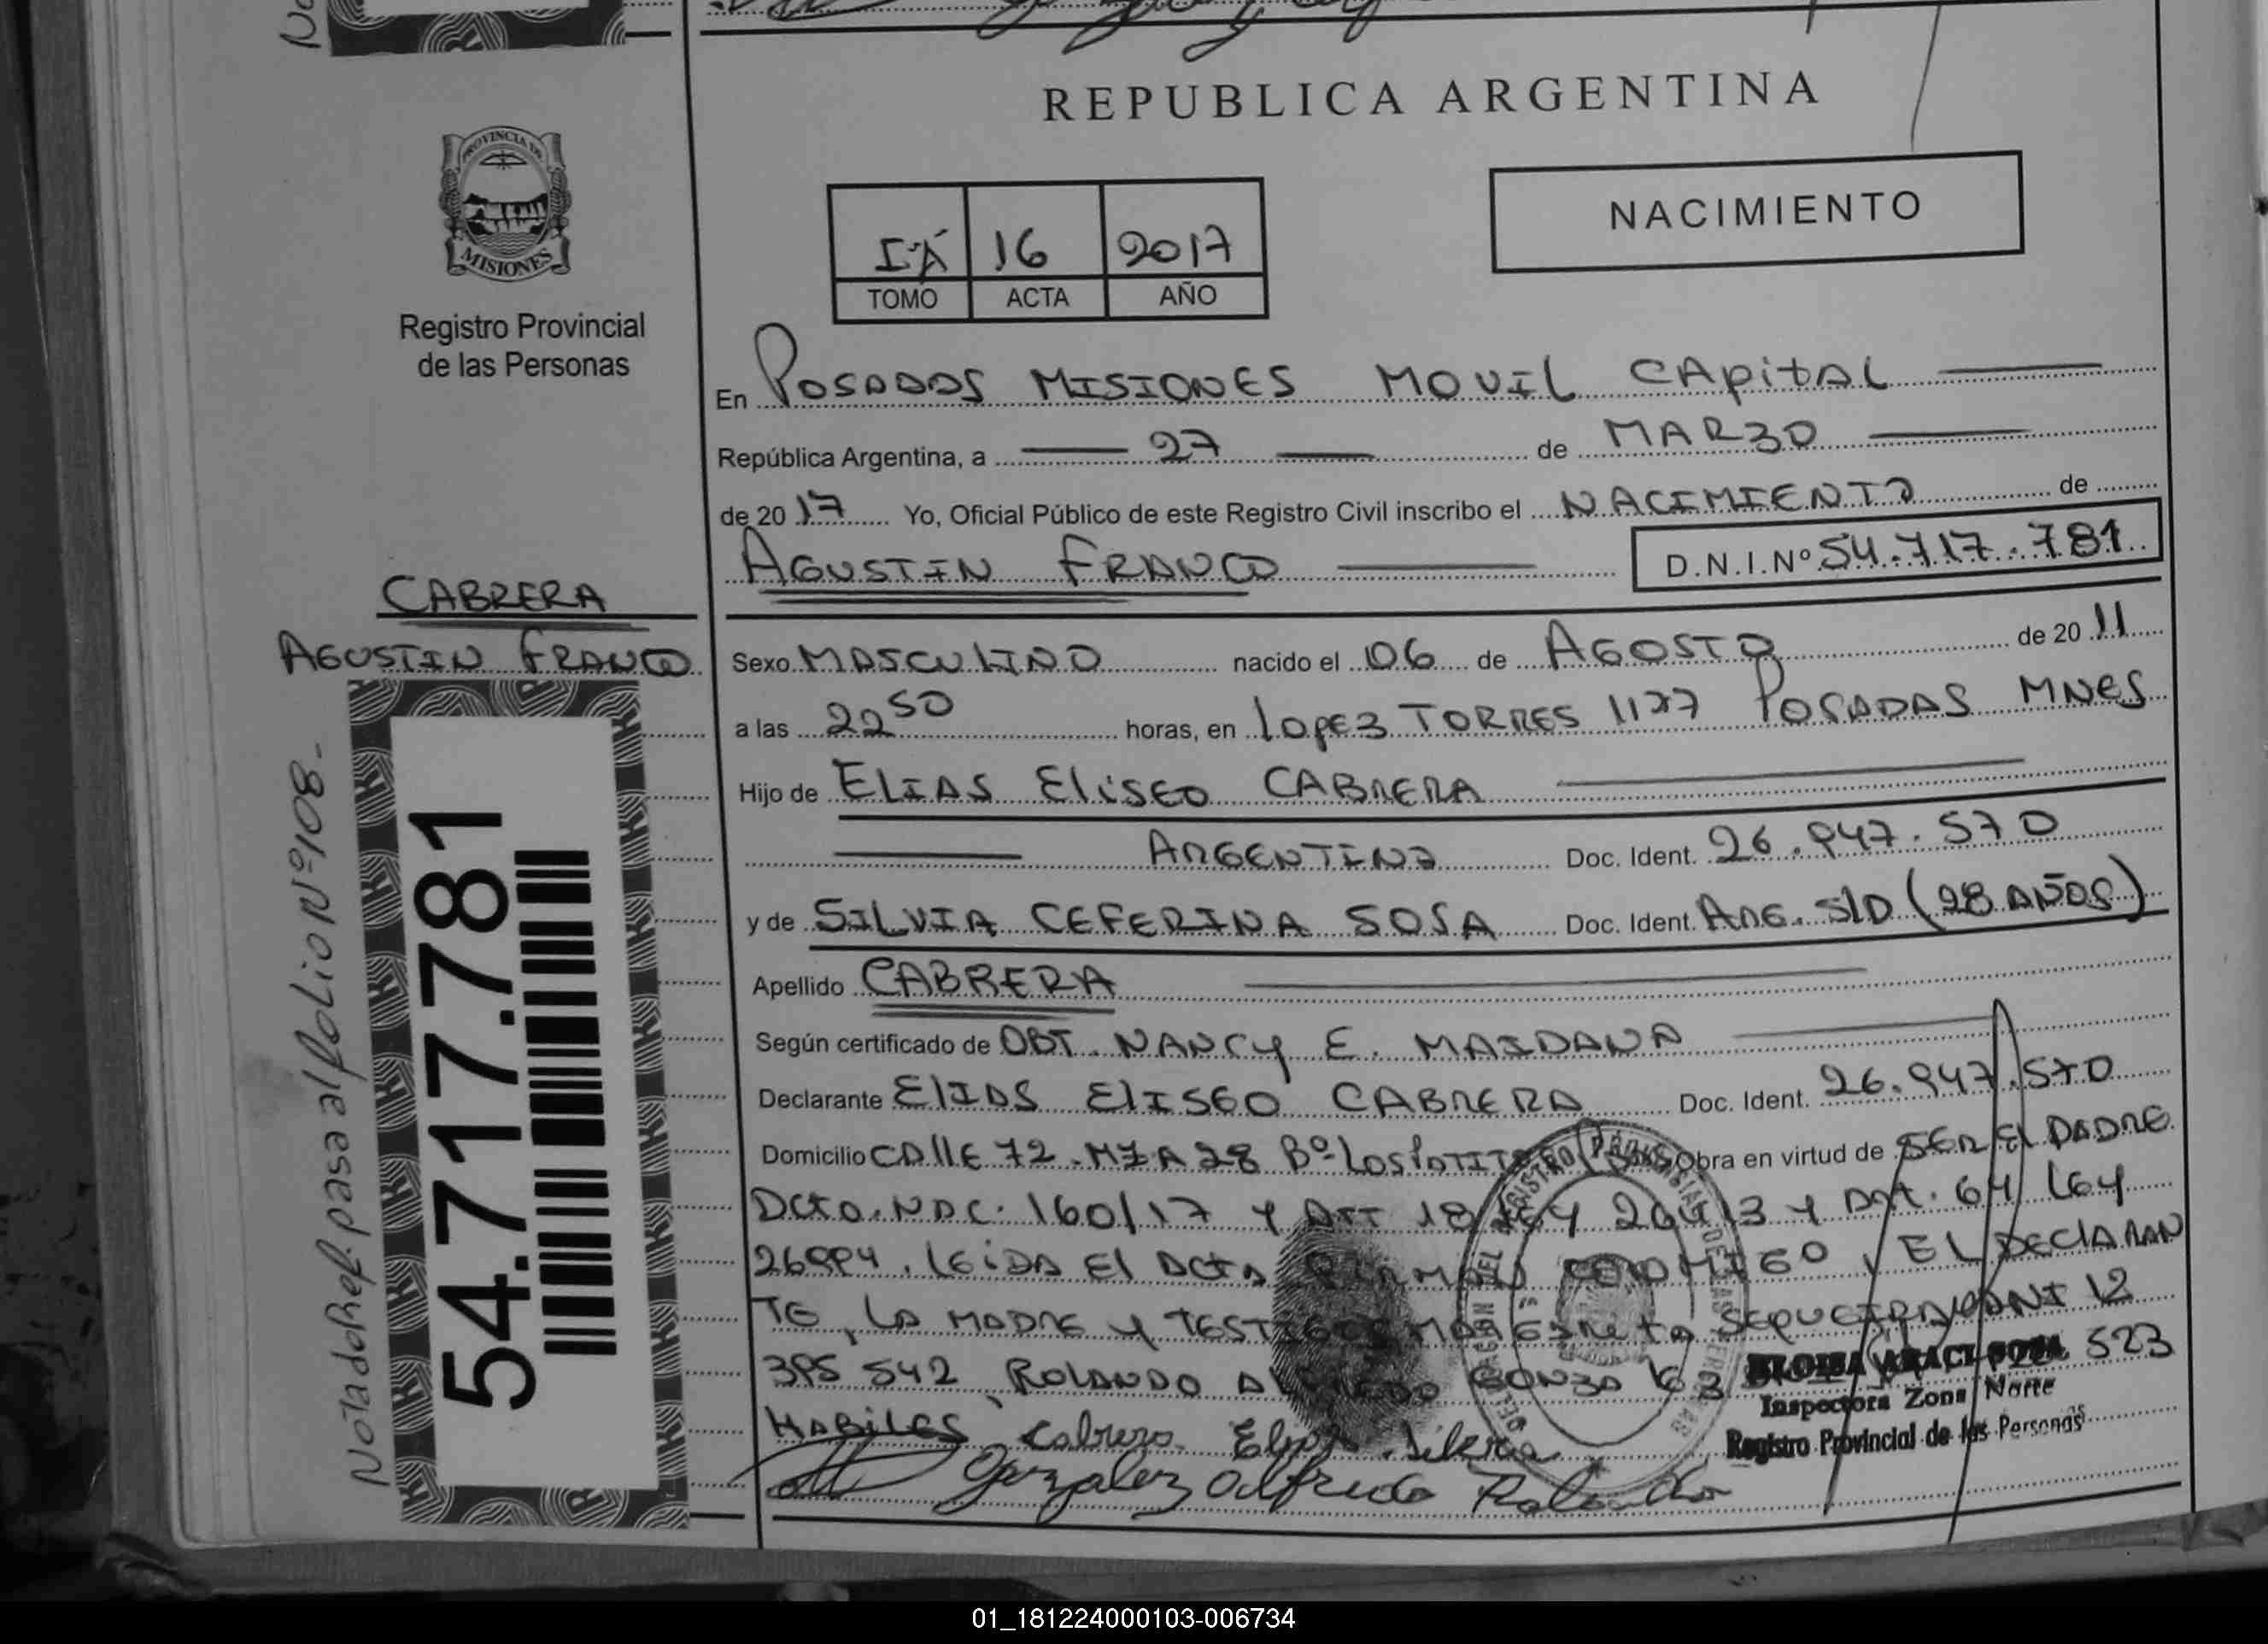 REPUBLICA ARGENTINA
NACIMIENTO
PROVINCIA DE
MISIONES
Registro Provincial
de las Personas
16 2017
TOMO ACTA AÑO
En POSADAS MISIONES MOVIL CAPITAL
República Argentina, a 27 de MARZO
de 2017 Yo, Oficial Público de este Registro Civil inscribo el NACIMIENTO de
AGUSTIN FRANCO D.N.I.Nº 54.717.781
CABRERA
AGUSTIN FRANCO
Sexo MASCULINO nacido el 06 de AGOSTO de 2011
a las 22 50 horas, en LOPEZ TORRES 1177 POSADAS MNES
Hijo de ELIAS ELISEO CABRERA
ARGENTINO Doc. Ident. 26.947.570
y de SILVIA CEFERINA SOSA Doc. Ident. ARG. S/D (28 AÑOS)
Apellido CABRERA
Según certificado de OBT. NANCY E. MAIDANA
Declarante ELIAS ELISEO CABRERA Doc. Ident. 26.947.570
Domicilio CALLE 72 MZA 28 Bº LOS Obra en virtud de SER EL PADRE
DCTO. NAC. 160/17 Y ART 18 LEY Y ART. 64 LEY
26994. LEIDA EL ACTA CONMIGO, EL DECLARAN
TE, LA MADRE Y DNI 12
395 542, ROLANDO 523
HABILES
Cabrera
Gonzalez Alfredo Rolando
Inspectora Zona Norte
Registro Provincial de las Personas
54.717.781
Nota de Ref. pasa al folio Nº 108.-
01_181224000103-006734